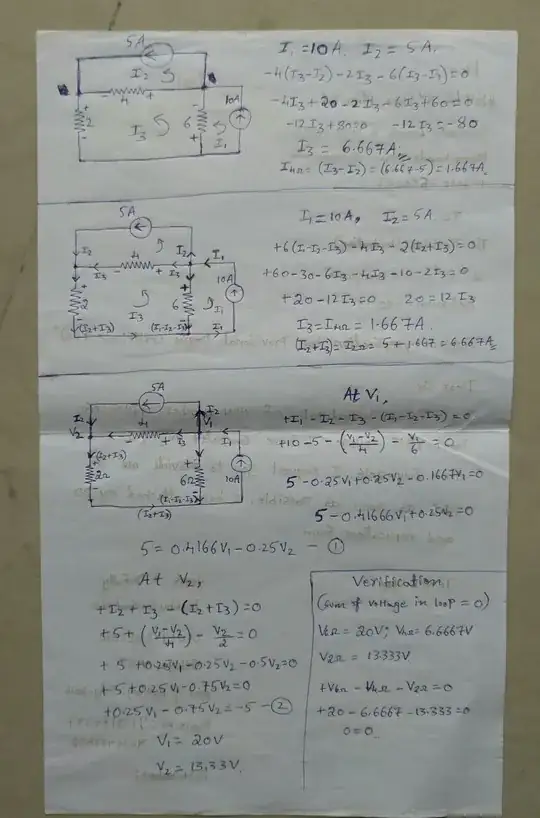 5A
I2
4
- +
10A
2
I3
6
I1
I1 = 10A. I2 = 5A.
-4(I3-I2) - 2I3 - 6(I3-I1) = 0
-4I3 + 20 - 2I3 - 6I3 + 60 = 0
-12I3 + 80 = 0 -12I3 = -80
I3 = 6.667A.
I4Ω = (I3-I2) = (6.667-5) = 1.667A.
5A
I2
4
I2
I1
I3
I3
10A
2
I3
6
I1
(I2+I3)
(I1-I2-I3)
I1
I1 = 10A, I2 = 5A.
+6(I1-I2-I3) - 4I3 - 2(I2+I3) = 0
+60-30-6I3-4I3-10-2I3 = 0
+20-12I3 = 0 20 = 12I3
I3 = I4Ω = 1.667A.
(I2+I3) = I2Ω = 5+1.667 = 6.667A
5A
I2
V2
4
I3
I2
V1
I1
(I2+I3)
2Ω
6Ω
10A
(I1-I2-I3)
(I2+I3)
At V1,
+I1 - I2 - I3 - (I1-I2-I3) = 0
+10 - 5 - (V1-V2/4) - V1/6 = 0
5 - 0.25V1 + 0.25V2 - 0.1667V1 = 0
5 - 0.41666V1 + 0.25V2 = 0
5 = 0.4166V1 - 0.25V2 - ①
At V2,
+I2 + I3 - (I2+I3) = 0
+5 + (V1-V2/4) - V2/2 = 0
+ 5 + 0.25V1 - 0.25V2 - 0.5V2 = 0
+5 + 0.25V1 - 0.75V2 = 0
+0.25V1 - 0.75V2 = -5 - ②
V1 = 20V
V2 = 13.33V.
Verification:
(sum of voltage in loop = 0)
V6Ω = 20V; V4Ω = 6.6667V
V2Ω = 13.333V
+V6Ω - V4Ω - V2Ω = 0
+20 - 6.6667 - 13.333 = 0
0 = 0